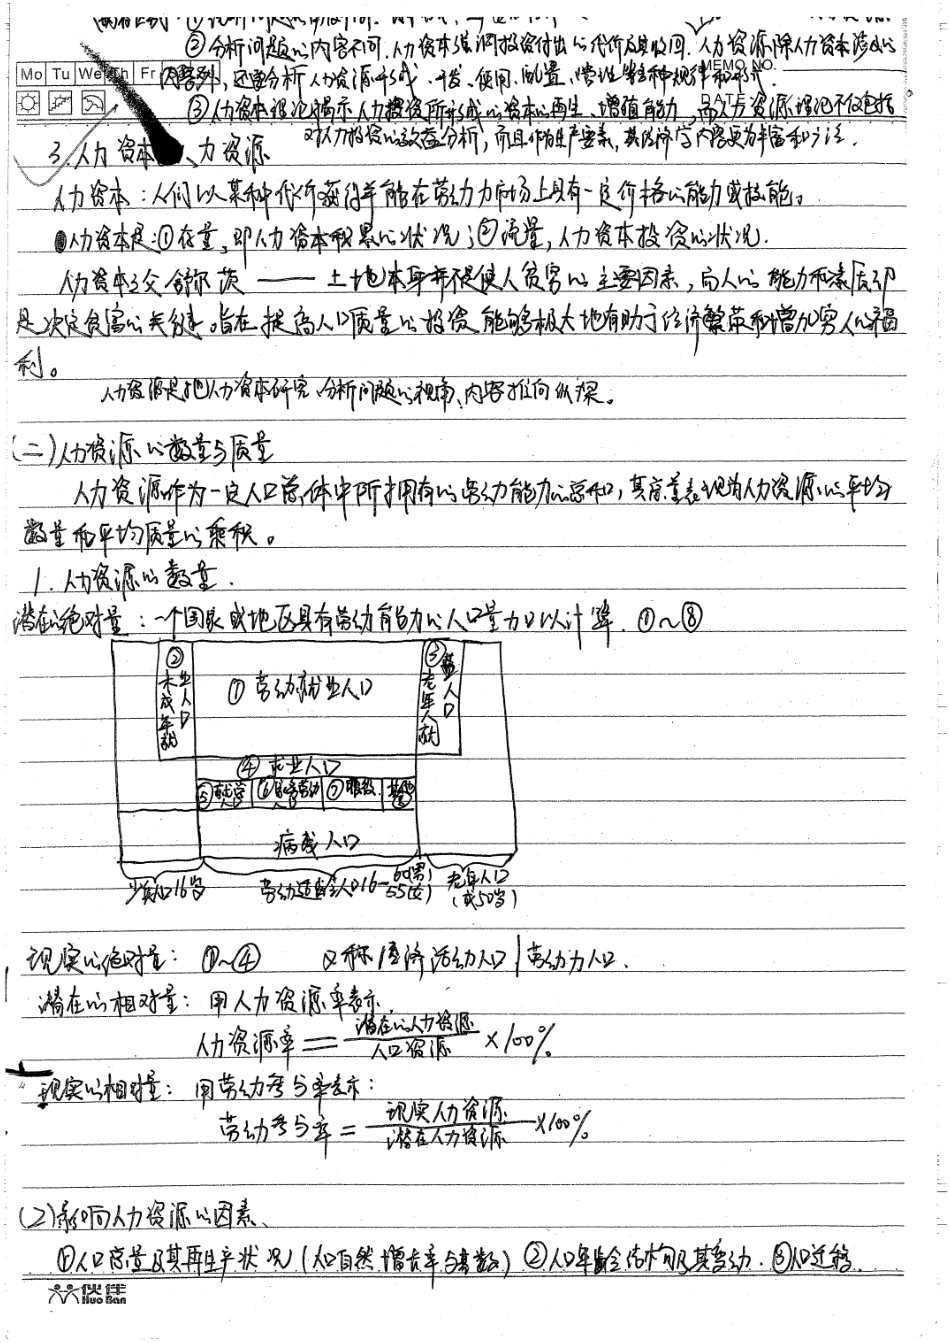 ②分析问题的内容不同.人力资本强调投资付出的代价及其收回.人力资源除人力资本涉及的
MEMO NO.
Mo Tu We Th Fr
内容外,还要分析人力资源形成、开发、使用、配置、管理等种种规律和形式.
DATE
③人力资本理论揭示人力投资所形成的资本的再生、增值能力,而人力资源理论不仅包括
对人力投资的效益分析,而且作为生产要素,其经济学内容更为丰富和广泛.
3.人力资本 人力资源
人力资本:人们以某种代价获得并能在劳动力市场上具有一定价格的能力或技能。
人力资本是:①存量,即人力资本积累的状况;②流量,人力资本投资的状况.
人力资本之父舒尔茨——土地本身并不是使人贫穷的主要因素,而人的能力和素质却
是决定贫富的关键。旨在提高人口质量的投资能够极大地有助于经济繁荣和增加穷人的福
利。
人力资源是把人力资本研究、分析问题的视角、内容推向纵深。
(二)人力资源的数量与质量
人力资源作为一定人口总体中所拥有的劳动能力的总和,其总量表现为人力资源的平均
数量和平均质量的乘积。
1.人力资源的数量.
潜在的绝对量:一个国家或地区具有劳动能力的人口量加以计算.①~⑧
②未成年就业人口
①劳动就业人口
③老年人就业人口
④求业人口
⑤就学人口 ⑥家务劳动人口 ⑦服役 其他
病残人口
少年人口16岁 劳动适龄人口16-60(男)55(女) 老年人口(或50岁)
现实的绝对量:①~④ 又称经济活动人口|劳动力人口.
潜在的相对量:用人力资源率表示.
人力资源率=潜在的人力资源/人口资源×100%
现实的相对量:用劳动参与率表示:
劳动参与率=现实人力资源/潜在人力资源×100%
(2)影响人力资源的因素、
①人口总量及其再生产状况(人口自然增长率与基数)②人口年龄结构及其变动.③人口迁移.
伙伴
Huo Ban